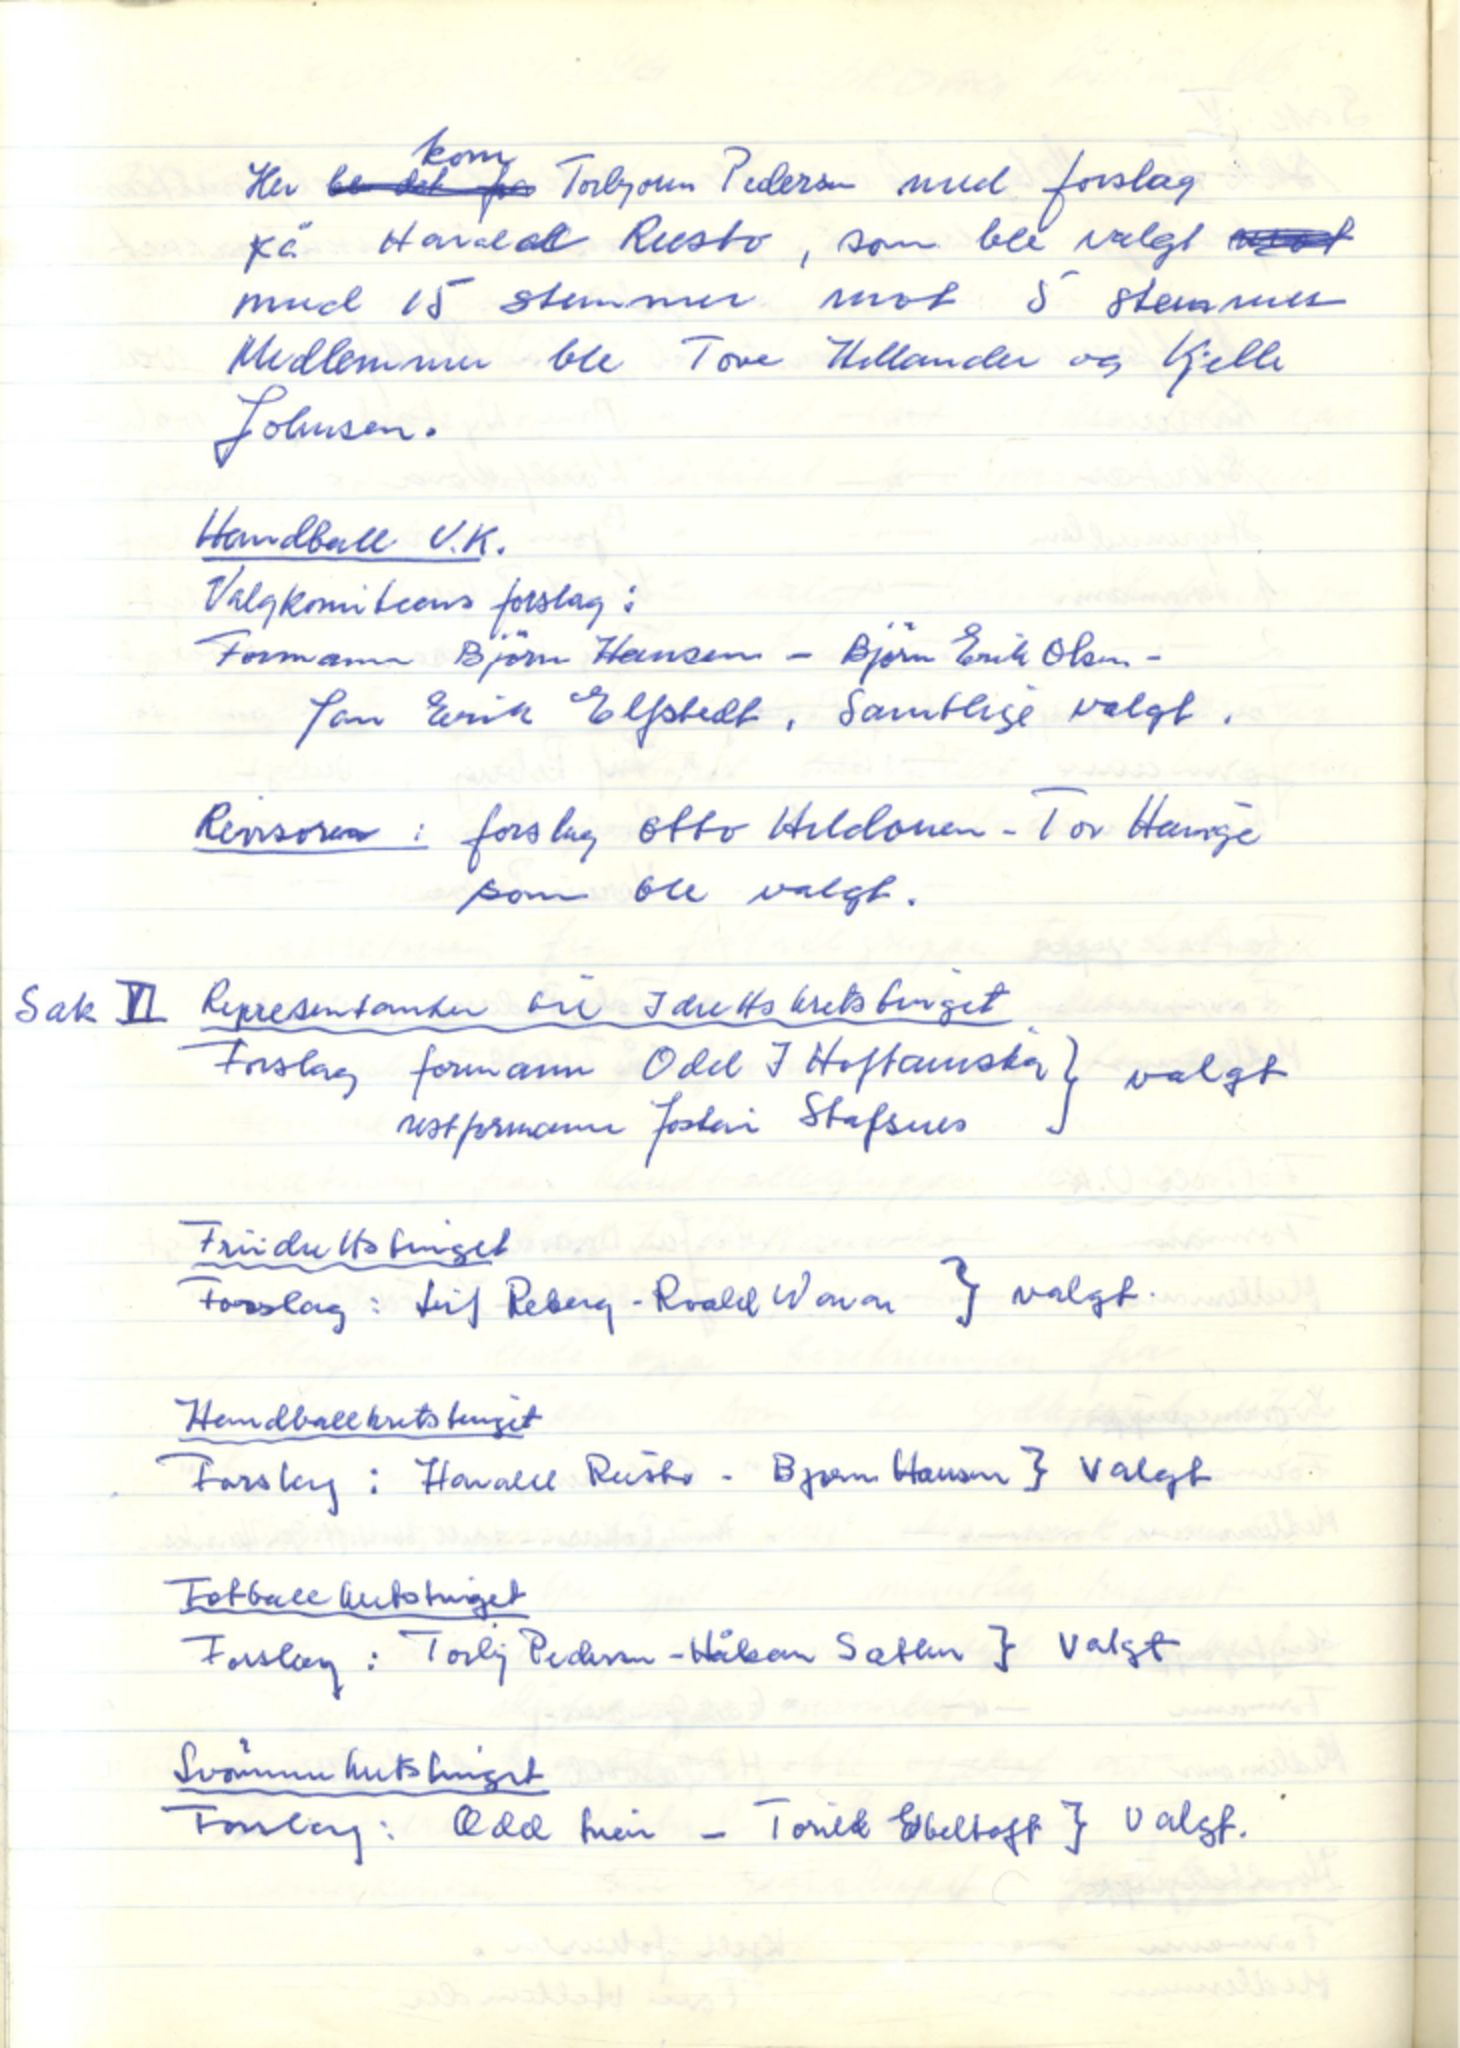 Her kom Torbjørn Pedersen med forslag
på Harald Rusto, som ble valgt
med 15 stemmer mot 5 stemmer
Medlemmer ble Tove Hellander og Kjell
Johnsen.
Handball U.K.
Valgkomiteens forslag:
Formann Björn Hansen - Björn Erik Olsen -
Jan Erik Elfstedt, Samtlige valgt.
Revisorer: forslag Otto Hildonen - Tor
som ble valgt.
Sak VI Representanter til Idrettskretstinget
Forslag formann Odd I } valgt
vestformann Jostein Stafsnes
Friidrettstinget
Forslag: Leif Reberg - Roald Waran } valgt.
Handballkretstinget
Forslag: Harald Rusto - Bjørn Hansen } Valgt
Fotballkretstinget
Forslag: Torbj Pedersen - Håkan Sæther } Valgt
Svömmekretstinget
Forslag: Odd - Torild Ebeltoft } Valgt.